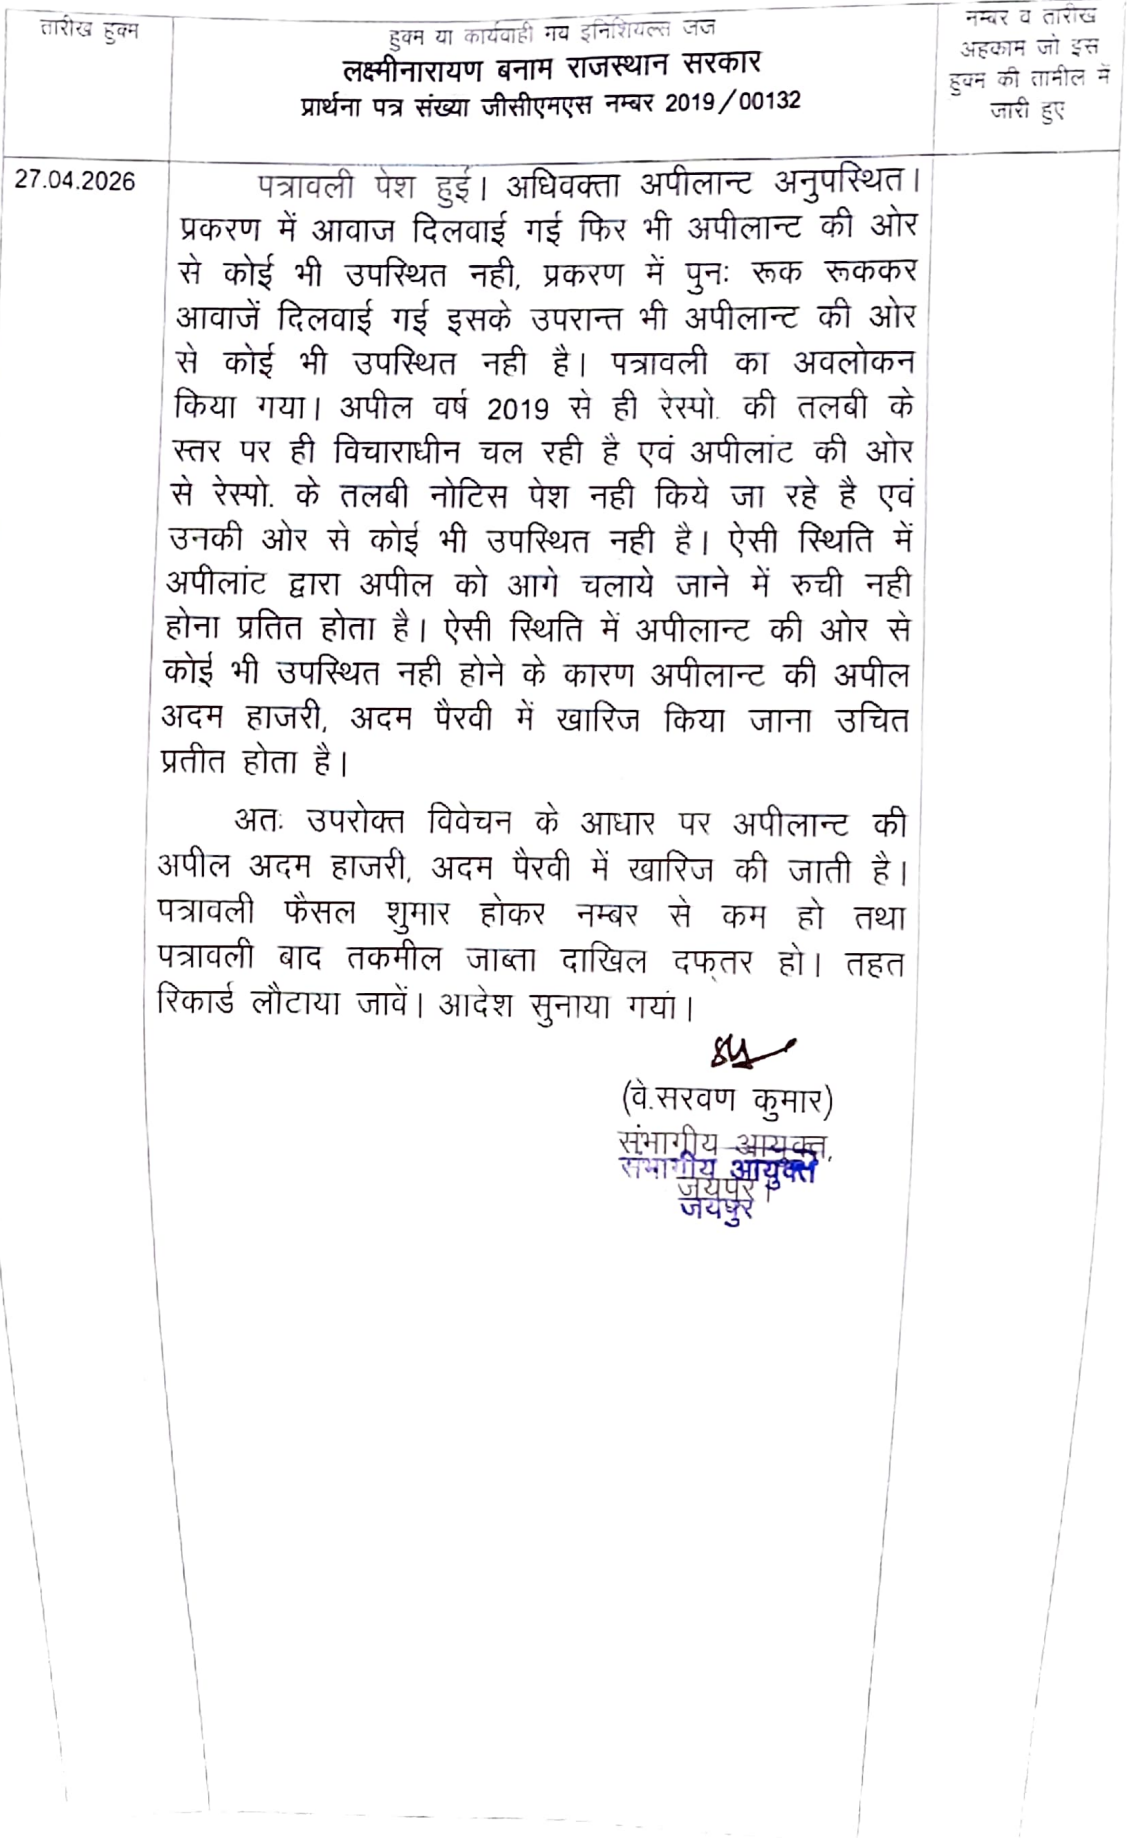 तारीख हुक्म
हुक्म या कार्यवाही मय इनिशियल्स जज
लक्ष्मीनारायण बनाम राजस्थान सरकार
प्रार्थना पत्र संख्या जीसीएमएस नम्बर 2019/00132
नम्बर व तारीख
अहकाम जो इस
हुक्म की तामील में
जारी हुए
27.04.2026
पत्रावली पेश हुई। अधिवक्ता अपीलान्ट अनुपस्थित।
प्रकरण में आवाज दिलवाई गई फिर भी अपीलान्ट की ओर
से कोई भी उपस्थित नही, प्रकरण में पुनः रूक रूककर
आवाजें दिलवाई गई इसके उपरान्त भी अपीलान्ट की ओर
से कोई भी उपस्थित नही है। पत्रावली का अवलोकन
किया गया। अपील वर्ष 2019 से ही रेस्पो. की तलबी के
स्तर पर ही विचाराधीन चल रही है एवं अपीलांट की ओर
से रेस्पो. के तलबी नोटिस पेश नही किये जा रहे है एवं
उनकी ओर से कोई भी उपस्थित नही है। ऐसी स्थिति में
अपीलांट द्वारा अपील को आगे चलाये जाने में रुची नही
होना प्रतित होता है। ऐसी स्थिति में अपीलान्ट की ओर से
कोई भी उपस्थित नही होने के कारण अपीलान्ट की अपील
अदम हाजरी, अदम पैरवी में खारिज किया जाना उचित
प्रतीत होता है।
अतः उपरोक्त विवेचन के आधार पर अपीलान्ट की
अपील अदम हाजरी, अदम पैरवी में खारिज की जाती है।
पत्रावली फैसल शुमार होकर नम्बर से कम हो तथा
पत्रावली बाद तकमील जाब्ता दाखिल दफ्तर हो। तहत
रिकार्ड लौटाया जावें। आदेश सुनाया गया।
(वे.सरवण कुमार)
संभागीय आयुक्त,
संभागीय आयुक्त
जयपुर।
जयपुर